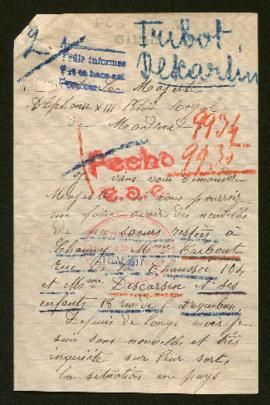 2
Tribot,
Dekartin
Pedir informes
Sa Majesté
Alphonse XIII Palais Royal
Madrid
9934
9935
Fecho
Je viens vous demander
Majesté si vous pourriez
me faire avoir des nouvelles
de mes soeurs restées à
Chauny Mme Tribout
rue de la Chaussée 104
et Mme Descarsin et ses
enfants 18 rue de
Depuis de longs mois je
suis sans nouvelles et très
inquiète sur leur sort,
la situation en pays